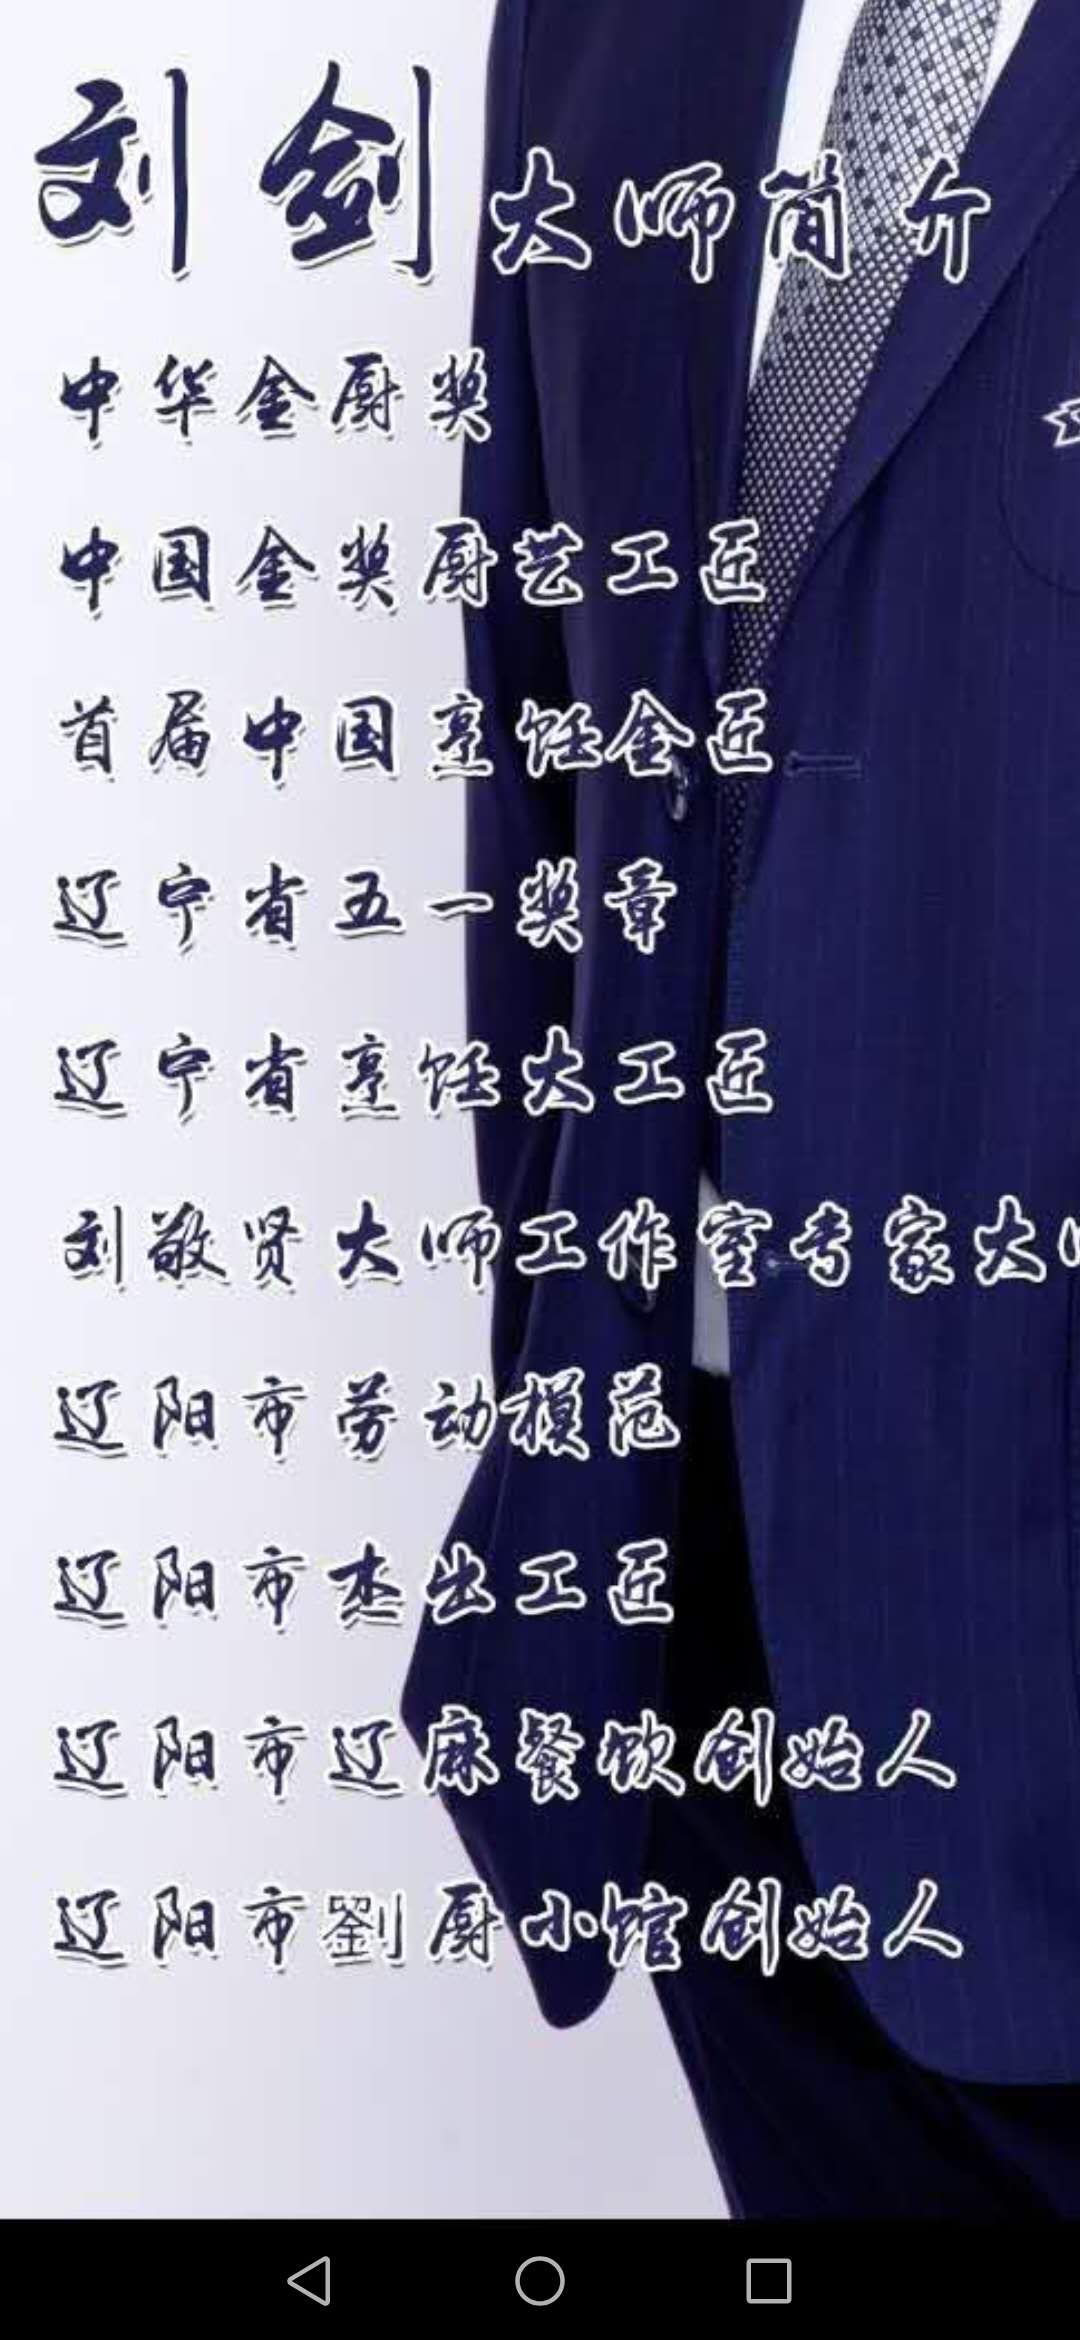 刘剑大师简介
中华金厨奖
中国金奖厨艺工匠
首届中国烹饪金匠
辽宁省五一奖章
辽宁省烹饪大工匠
刘敬贤大师工作室专家大师
辽阳市劳动模范
辽阳市杰出工匠
辽阳市辽麻餐饮创始人
辽阳市劉厨小馆创始人